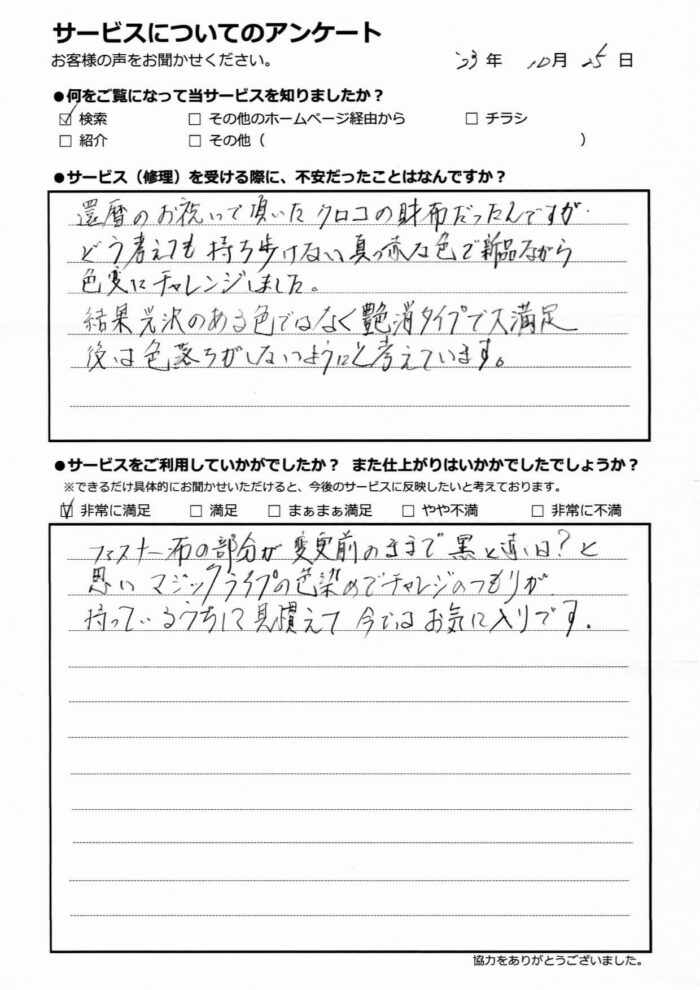 サービスについてのアンケート
お客様の声をお聞かせください。
'23 年 10月 25 日
●何をご覧になって当サービスを知りましたか？
☑ 検索 □ その他のホームページ経由から □ チラシ
□ 紹介 □ その他（ ）
●サービス（修理）を受ける際に、不安だったことはなんですか？
還暦のお祝いで頂いたクロコの財布だったんですが、
どう考えても持ち歩けない真っ赤な色で新品ながら
色変にチャレンジしました。
結果光沢のある色ではなく艶消タイプで大満足
後は色落ちがしないようにと考えています。
●サービスをご利用していかがでしたか？ また仕上がりはいかかでしたでしょうか？
※できるだけ具体的にお聞かせいただけると、今後のサービスに反映したいと考えております。
☑ 非常に満足 □ 満足 □ まぁまぁ満足 □ やや不満 □ 非常に不満
ファスナー布の部分が変更前のままで黒と
思い マジックライプの色染めでチャレジのつもりが
持っているうちに見慣えて 今ではお気に入りです.
協力をありがとうございました。